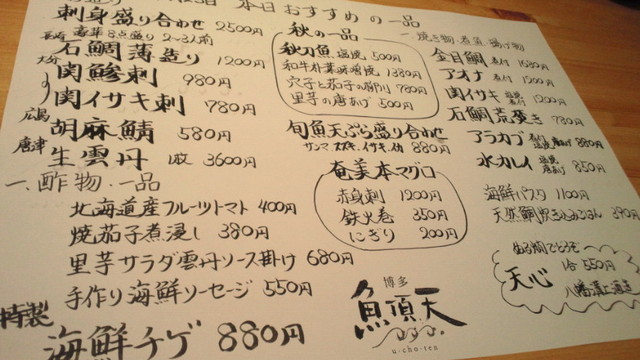 本日おすすめの一品
刺身盛り合わせ 2500円
豪華8点盛り 2~3人前
石鯛薄造り 1200円
関鯵刺 980円
関イサキ刺 780円
広島
胡麻鯖 580円
唐津
生雲丹 1枚 3600円
一、酢物・一品
北海道産フルーツトマト 400円
焼茄子煮浸し 380円
里芋サラダ雲丹ソース掛け 680円
手作り海鮮ソーセージ 550円
特製
海鮮チゲ 880円
秋の一品
秋刀魚 塩焼 500円
和牛朴葉味噌焼 1380円
穴子と茄子の柳川 780円
里芋の唐あげ 500円
旬魚天ぷら盛り合わせ
サンマ イサキ 他 880円
奄美本マグロ
赤身刺 1200円
鉄火巻 350円
にぎり 200円
博多
魚頂天
u-cho-ten
一、焼き物・煮気・揚げ物
金目鯛 煮付 1680円
アオナ 煮付 1200円
関イサキ 1200円
石鯛荒炊き 780円
アラカブ 880円
水カレイ 850円
海鮮パスタ 1100円
天然鯛 390円
天心
1合 550円